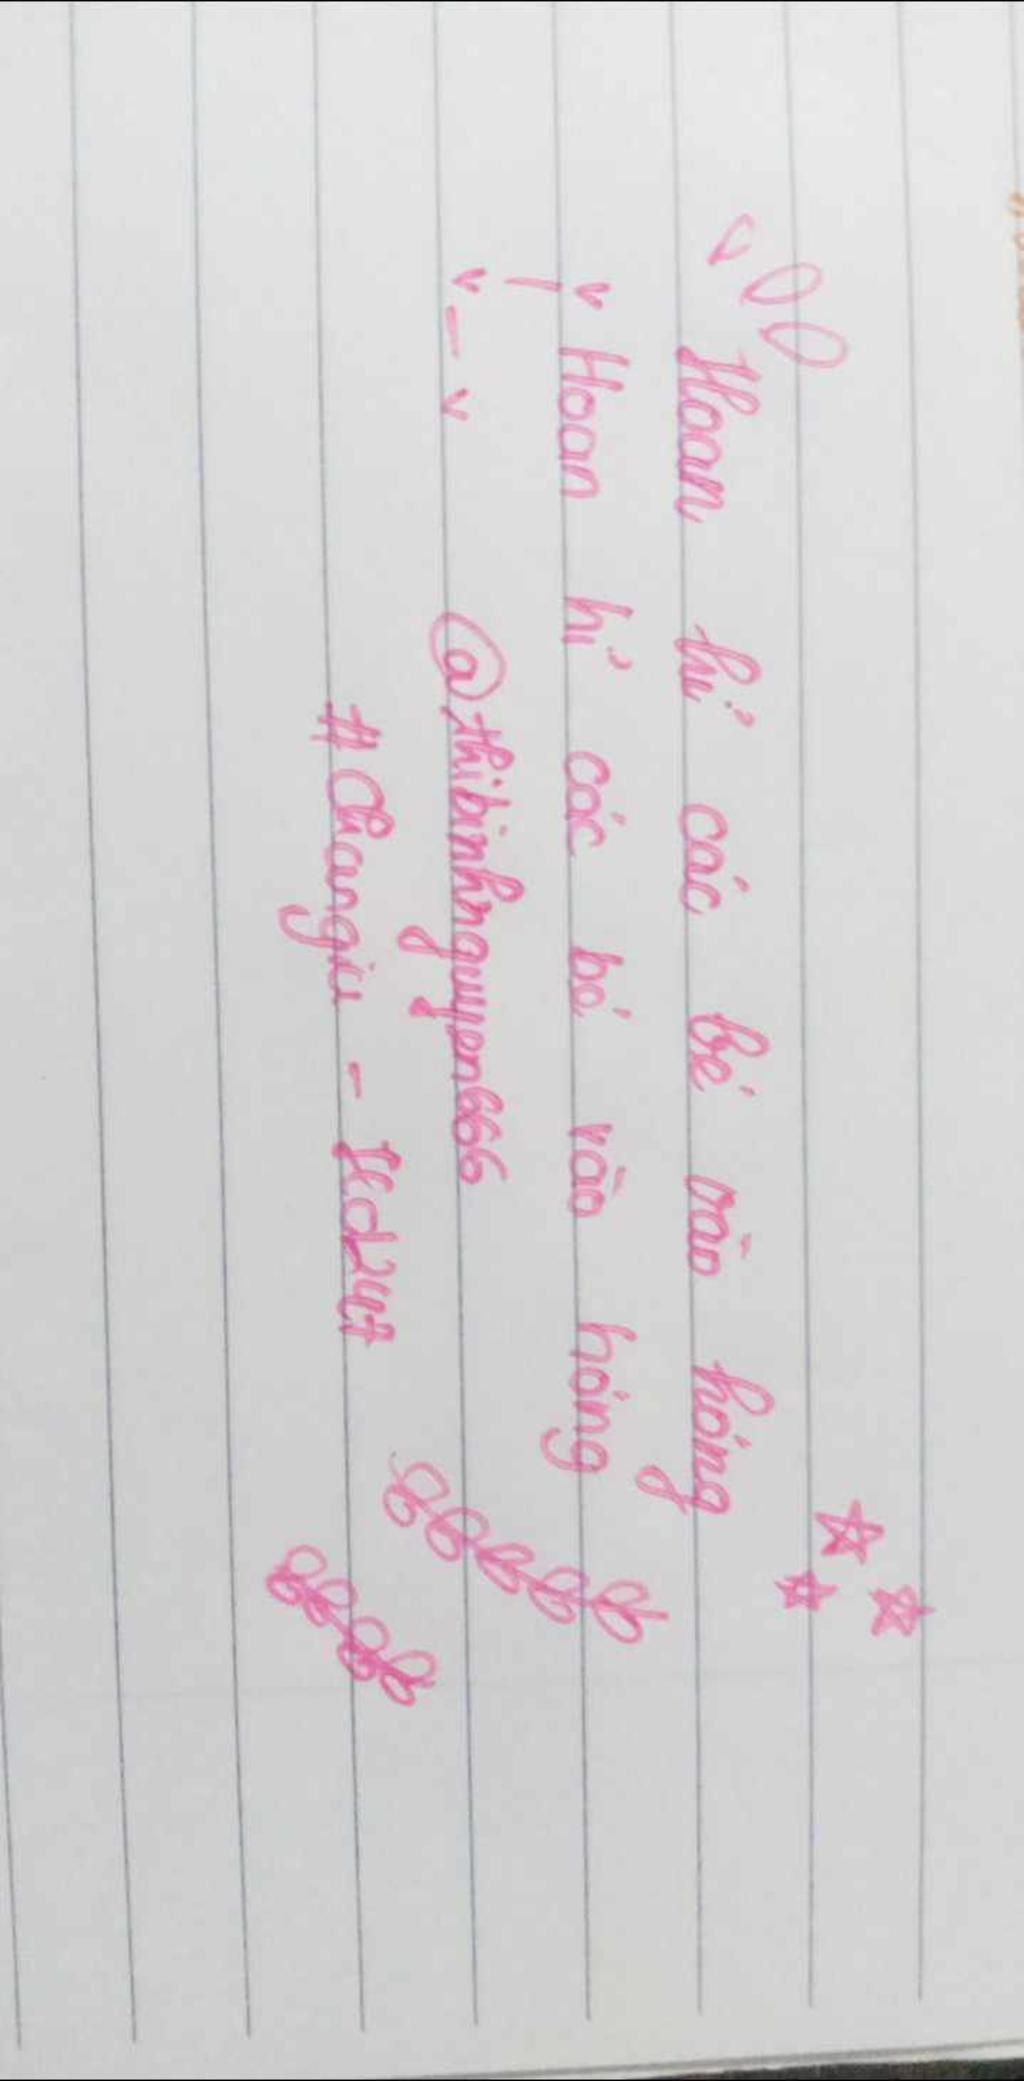 Hoan hỉ các bé vào hóng
Hoan hỉ các bé vào hóng
@thibinhnguyen666
#Changiu - Hd247